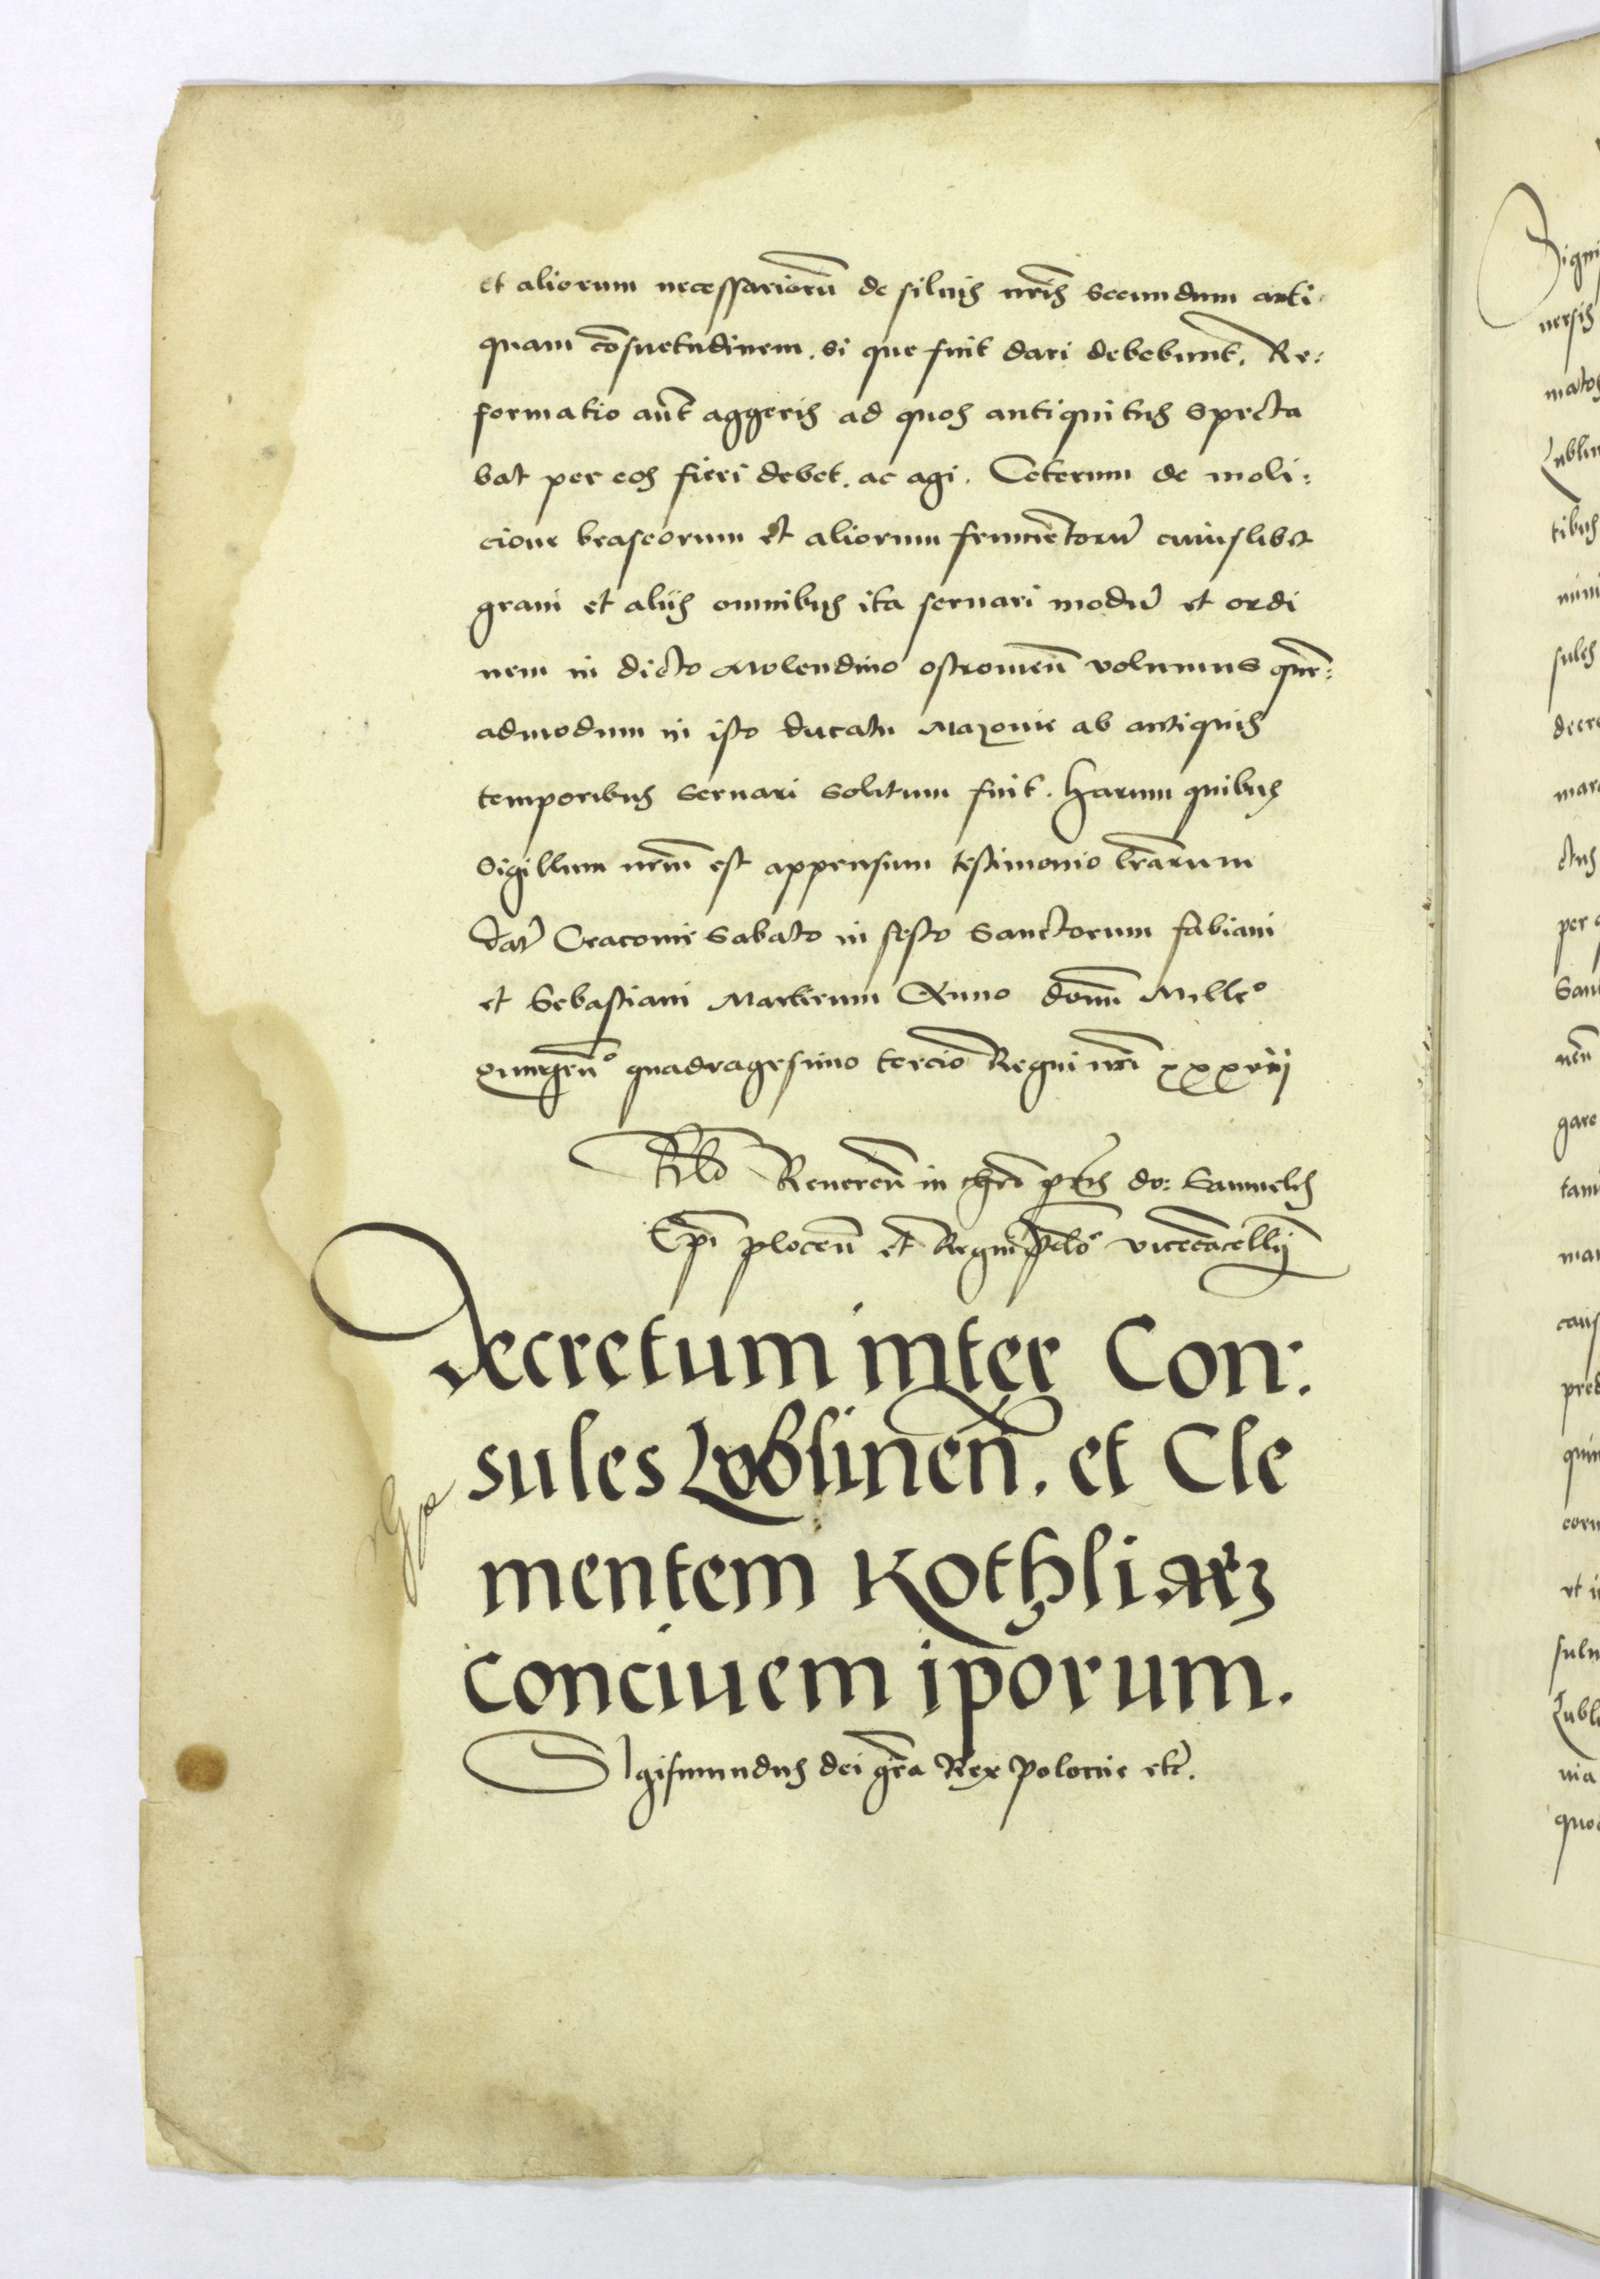 et aliorum necessarioru͞ de siluis nr͞is secundum anti
quam co͞nsuetudinem. si que fuit dari debebunt. Re:
formatio aut͞ aggeris ad quos antiquitus specta
bat per eos fieri debet. ac agi. Ceterum de moli:
cione braseorum et aliorum frume͞toru͞ cuiuslibet
grani et aliis omnibus ita seruari modu͞ et ordi
nem in dicto Molendino ostromen͞ volumus que͞:
admodum in isto ducatu Mazouie ab antiquis
temporibus seruari solitum fuit. Harum quibus
Sigillum nr͞um est appensum testimonio lr͞arum
dat͞ Cracouie Sabato in festo Sanctorum fabiani
et Sebastiani Martirum Anno domi͞ Mille°
quingen͞° quadragesimo tercio Regni nr͞i xxxviij
Rlo Reueren͞ in chr͞o pr͞is do: Samuelis
Ep͞i plocen͞ et Regni Polo͞ viceca͞cellij
Decretum inter Con:
sules Lublinen͞. et Cle
mentem Kothliarz
conciuem ip͞orum.
Sigismundus dei gr͞a Rex Polonie etc͞.